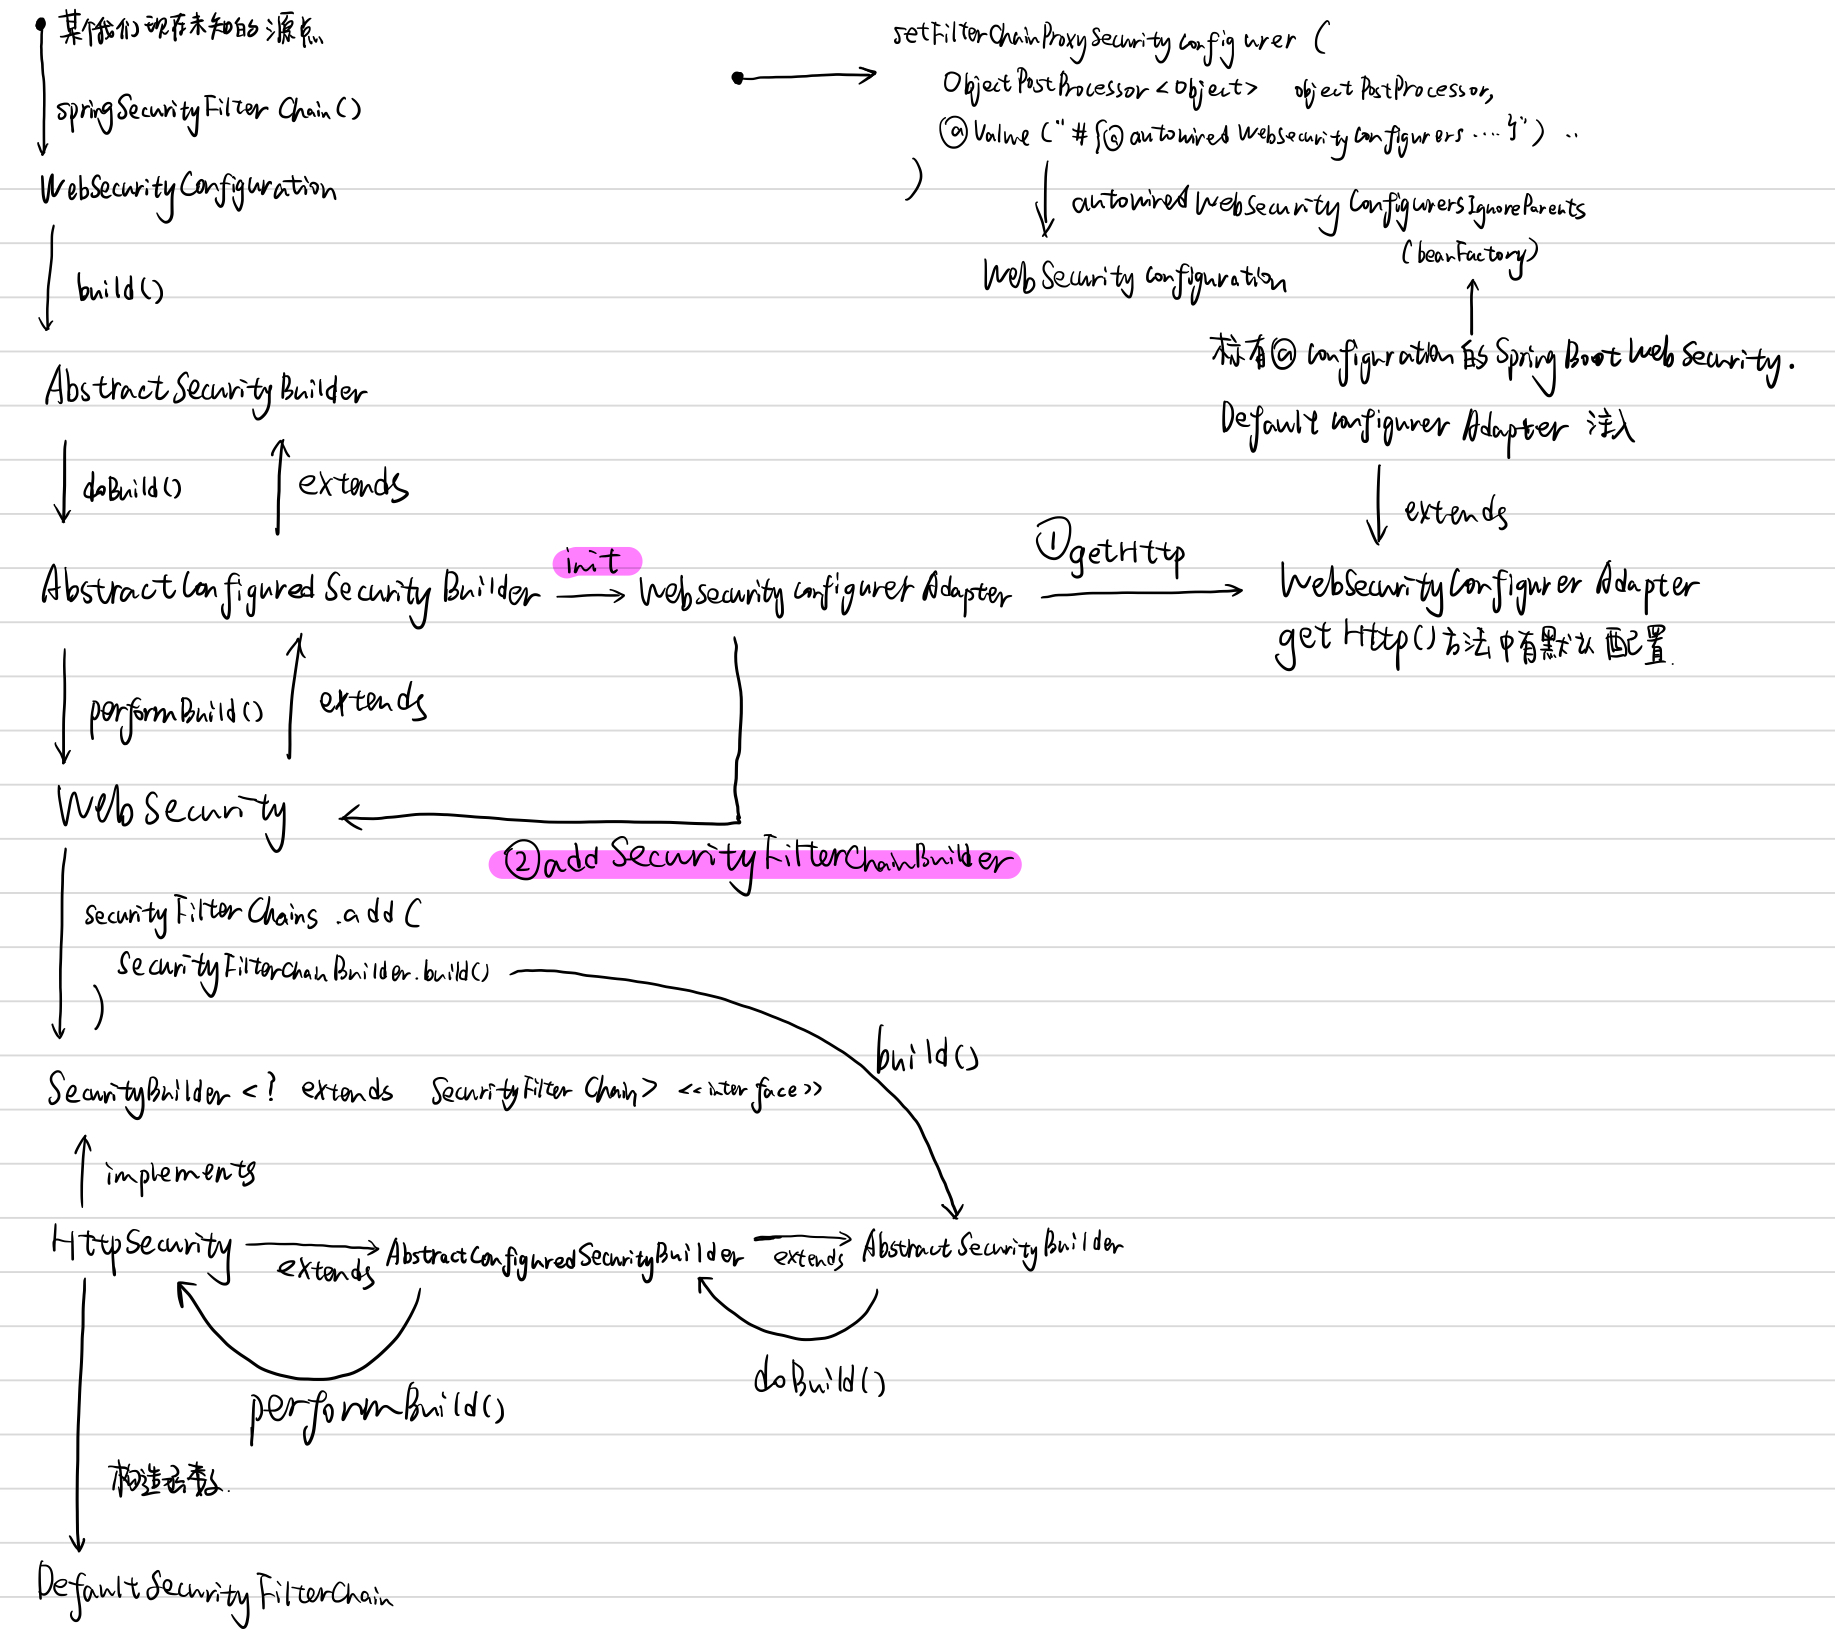 某个我们现在未知的源点
springSecurityFilterChain()
WebSecurityConfiguration
build()
AbstractSecurityBuilder
doBuild()
extends
AbstractConfiguredSecurityBuilder
init
WebsecurityConfigurerAdapter
①getHttp
performBuild()
extends
WebSecurity
②addSecurityFilterChainBuilder
securityFilterChains.add(
SecurityFilterChainBuilder.build()
)
build()
SecurityBuilder<? extends SecurityFilterChain> <<interface>>
implements
HttpSecurity
extends
AbstractConfiguredSecurityBuilder
extends
AbstractSecurityBuilder
performBuild()
doBuild()
构造函数.
DefaultSecurityFilterChain
setFilterChainProxySecurityConfigurer(
ObjectPostProcessor<Object> objectPostProcessor,
@Value("#{@autowiredWebSecurityConfigurers....}") ..
)
autowiredWebSecurityConfigurersIgnoreParents
(beanFactory)
WebSecurityConfiguration
标有@Configuration的SpringBootWebSecurity.
DefaultConfigurerAdapter 注入
extends
WebSecurityConfigurerAdapter
getHttp()方法中有默认配置.